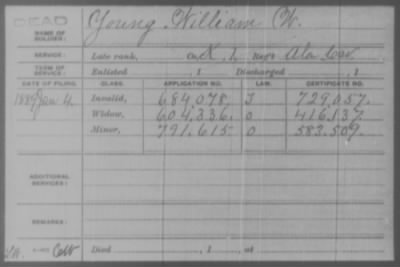 DEAD
NAME OF SOLDIER: Young, William W.
SERVICE: Late rank, Co. K, 1, Reg't Ala. Cav.
TERM OF SERVICE: Enlisted , 1 Discharged , 1
DATE OF FILING. CLASS. APPLICATION NO. LAW. CERTIFICATE NO.
1889 Jan 4. Invalid, 684,078. J 729,057.
Widow, 604,336. O 416,137.
Minor, 791,615. O 583,509.
ADDITIONAL SERVICES:
REMARKS:
Died , 1 , at